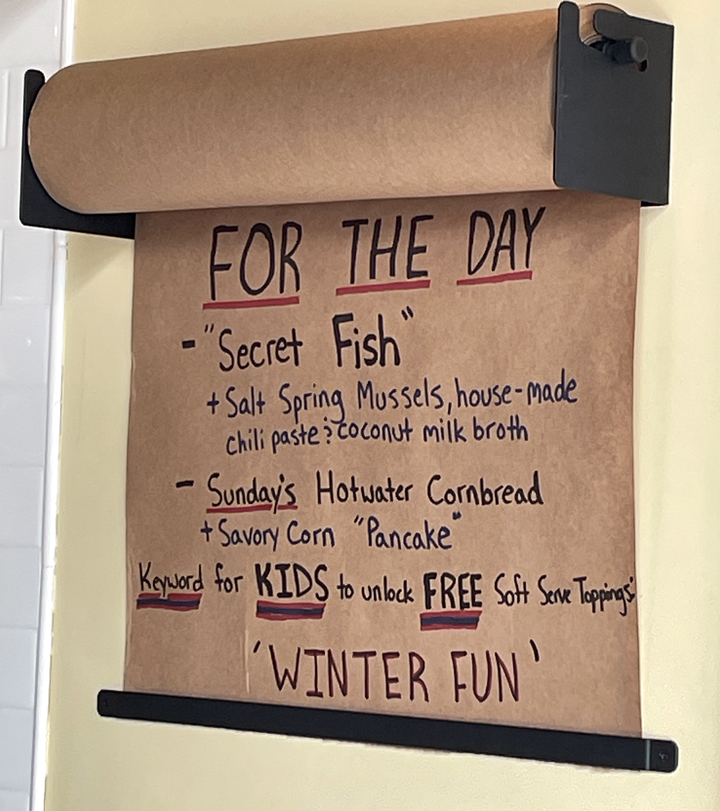 FOR THE DAY
- "Secret Fish"
+ Salt Spring Mussels, house-made
chili paste & coconut milk broth
- Sunday's Hotwater Cornbread
+ Savory Corn "Pancake"
Keyword for KIDS to unlock FREE Soft Serve Toppings:
'WINTER FUN'